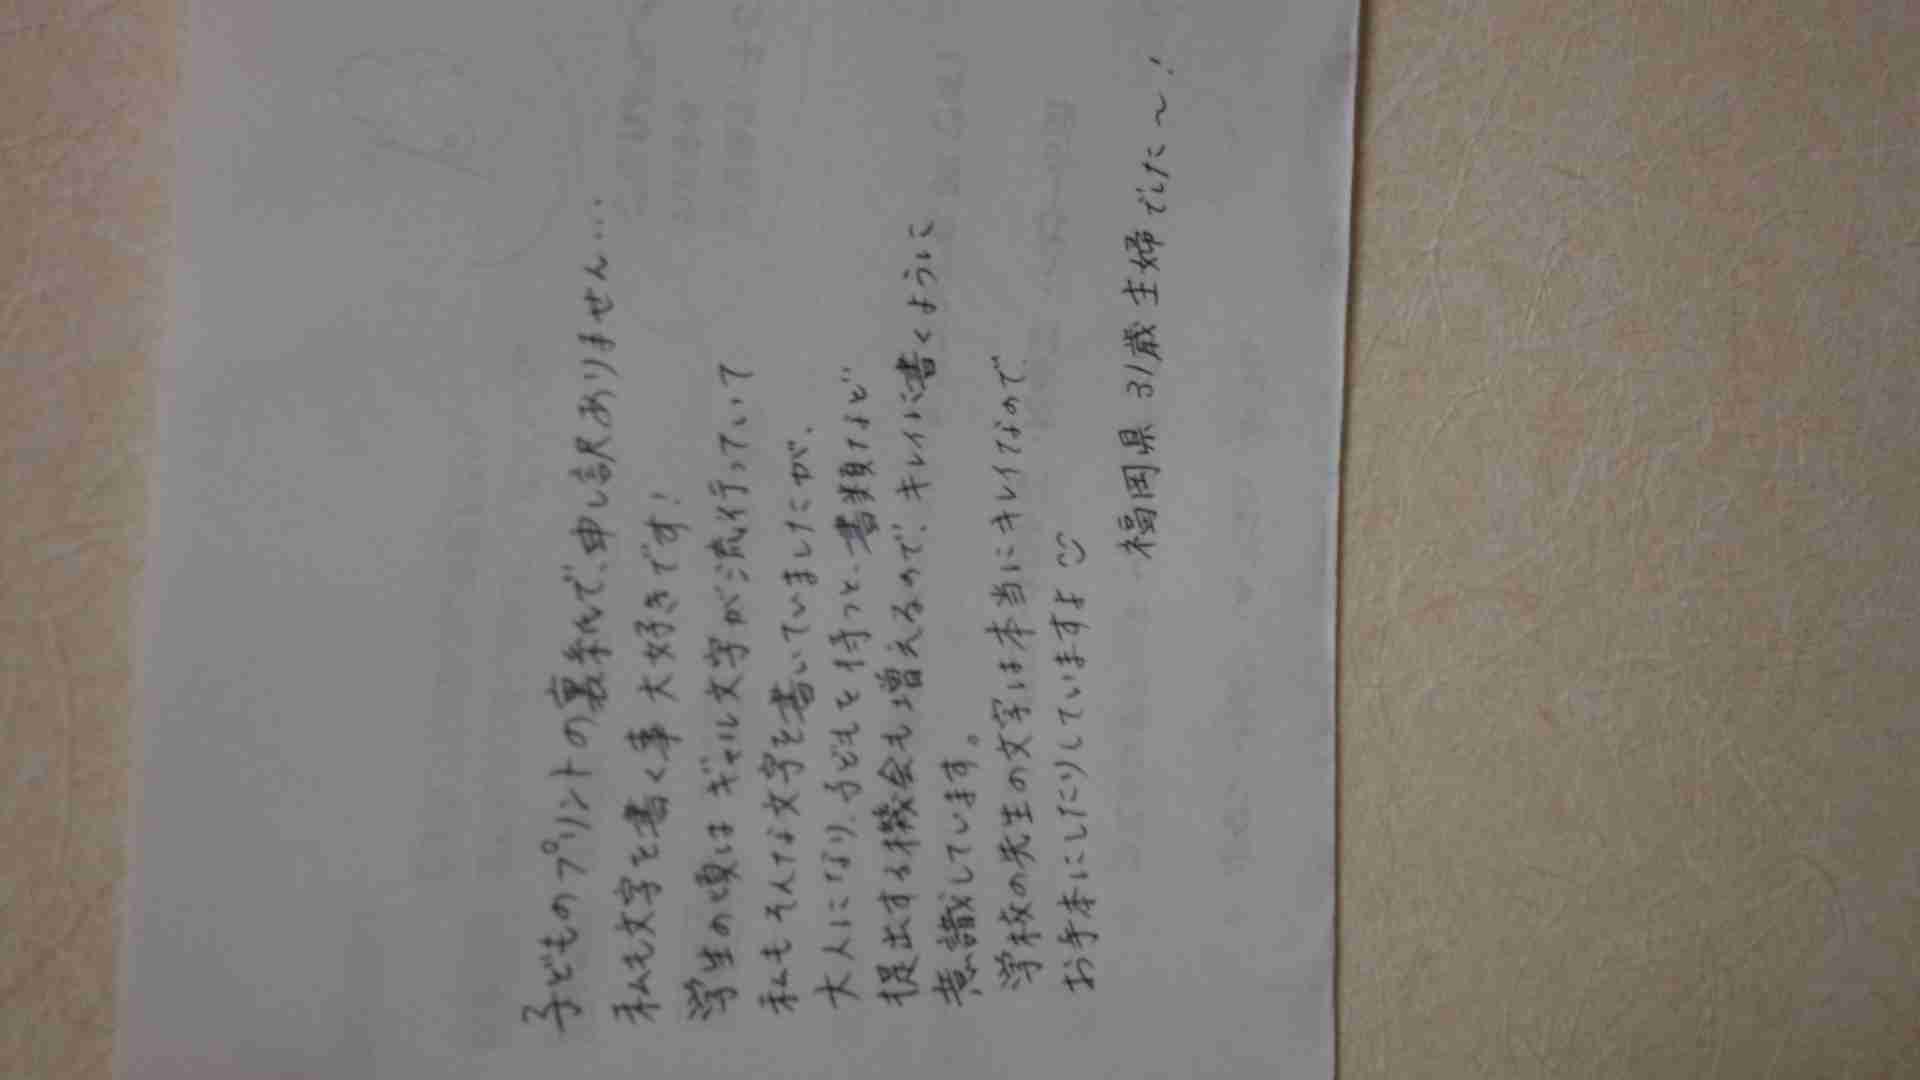 子どものプリントの裏紙で、申し訳ありません…
私も文字を書く事 大好きです!
学生の頃は ギャル文字が流行っていて
私もそんな文字を書いていましたが、
大人になり、子どもを持つと、書類など
提出する機会も増えるので、キレイに書くように
意識しています。
学校の先生の文字は本当にキレイなので、
お手本にしたりしていますよ☺
福岡県 31歳 主婦でした〜!